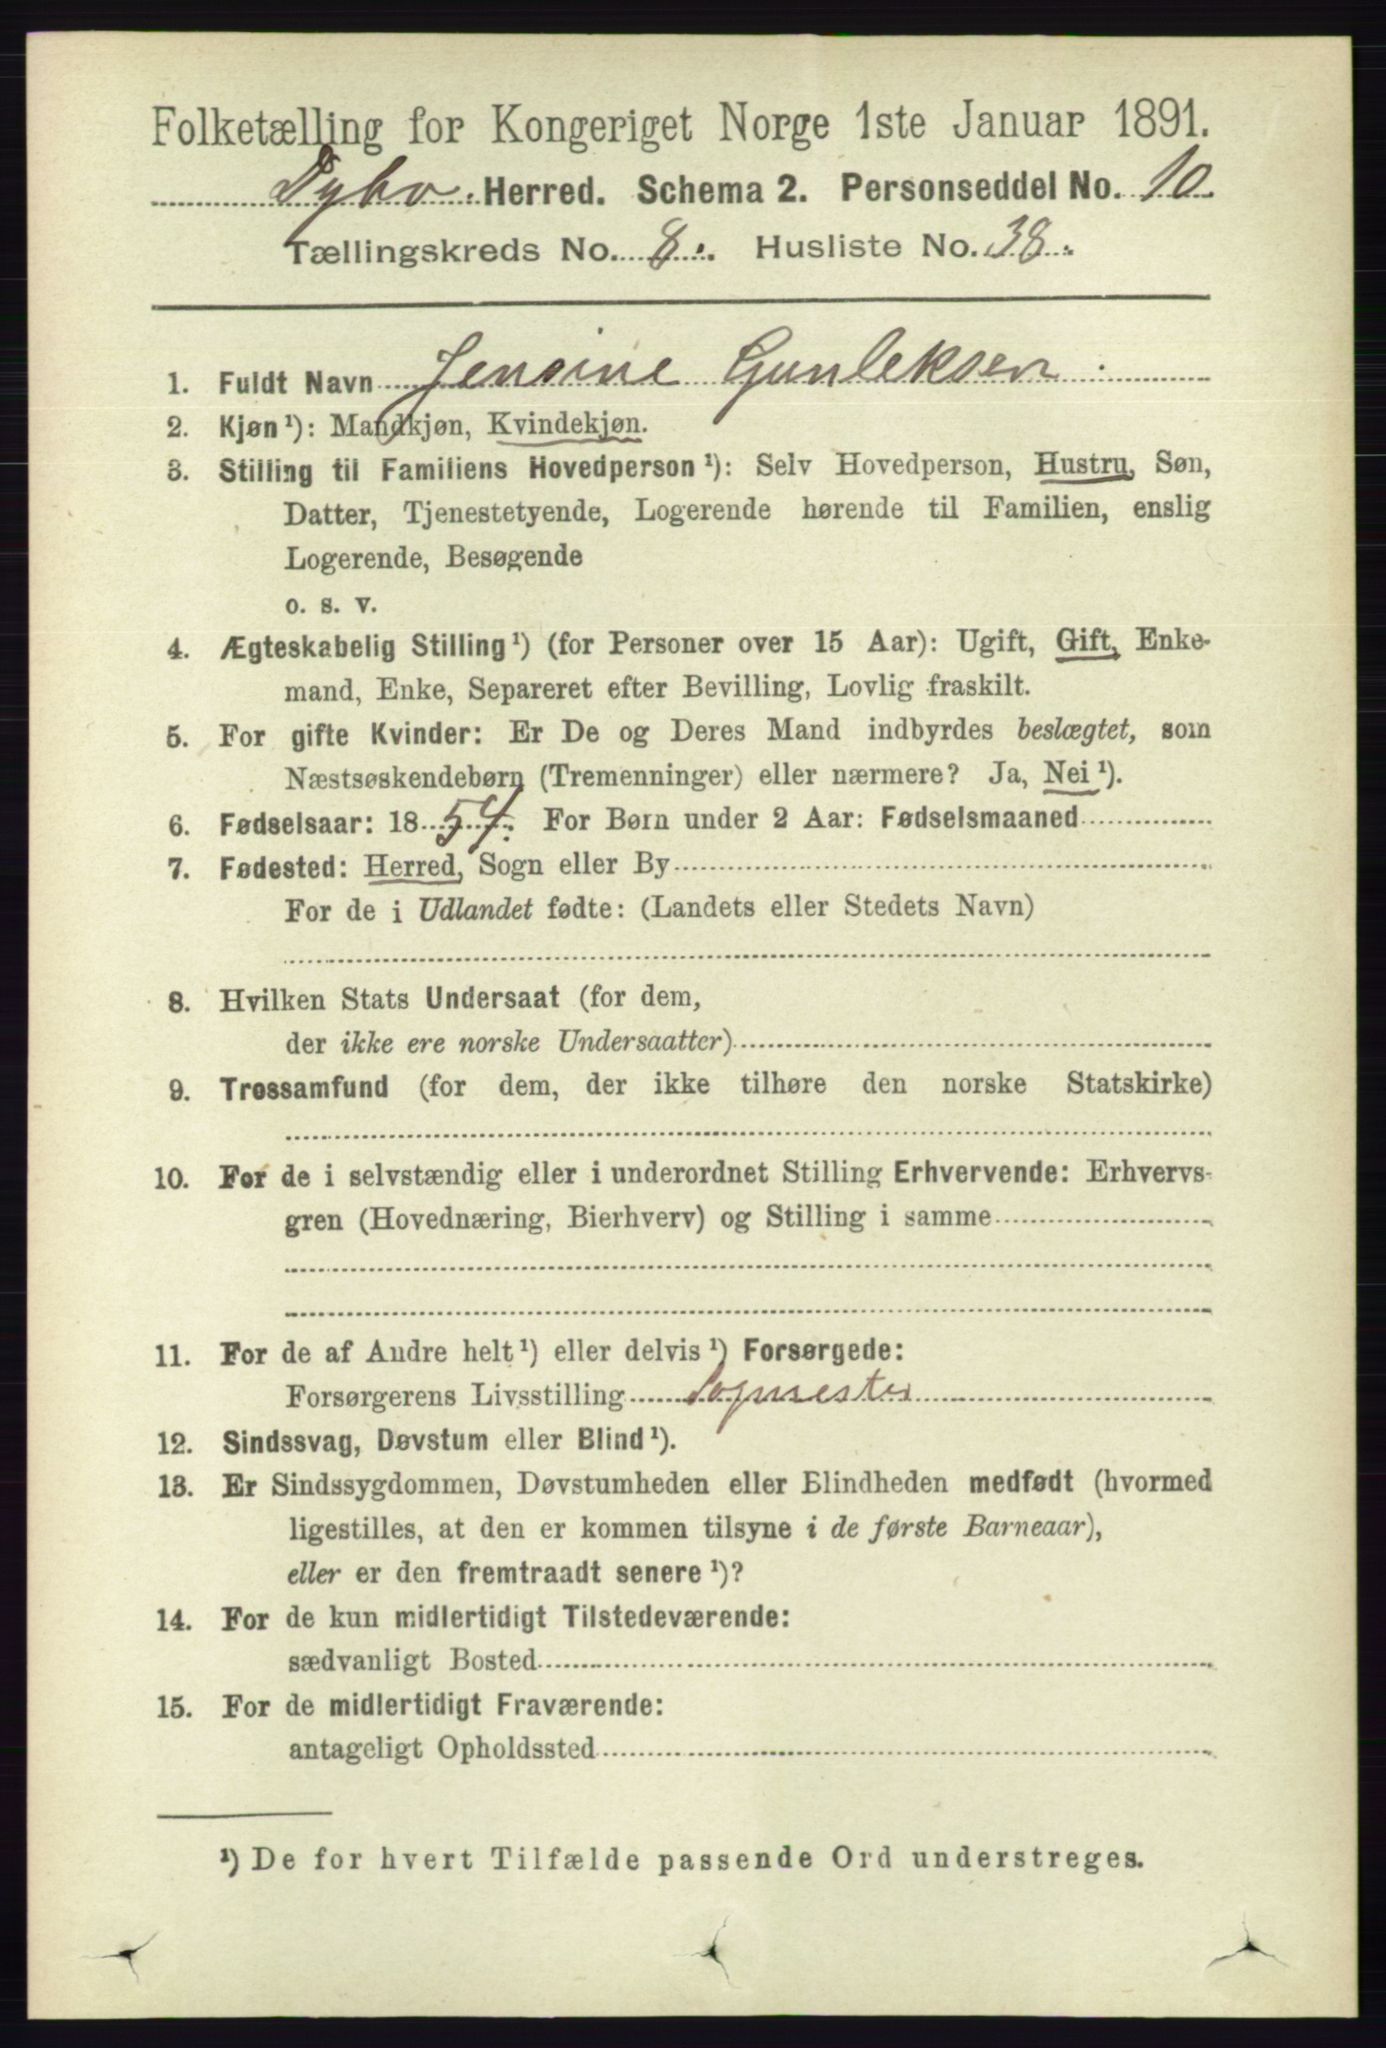 Folketælling for Kongeriget Norge 1ste Januar 1891.
Dybø. Herred. Schema 2. Personseddel No. 10
Tællingskreds No. 8. Husliste No. 38.
1. Fuldt Navn Jensine Gunleksen
2. Kjøn ¹): Mandkjøn, Kvindekjøn.
3. Stilling til Familiens Hovedperson ¹): Selv Hovedperson, Hustru, Søn,
Datter, Tjenestetyende, Logerende hørende til Familien, enslig
Logerende, Besøgende
o. s. v.
4. Ægteskabelig Stilling ¹) (for Personer over 15 Aar): Ugift, Gift, Enke-
mand, Enke, Separeret efter Bevilling, Lovlig fraskilt.
5. For gifte Kvinder: Er De og Deres Mand indbyrdes beslægtet, som
Næstsøskendebørn (Tremenninger) eller nærmere? Ja, Nei ¹).
6. Fødselsaar: 1854. For Børn under 2 Aar: Fødselsmaaned
7. Fødested: Herred, Sogn eller By
For de i Udlandet fødte: (Landets eller Stedets Navn)
8. Hvilken Stats Undersaat (for dem,
der ikke ere norske Undersaatter)
9. Trossamfund (for dem, der ikke tilhøre den norske Statskirke)
10. For de i selvstændig eller i underordnet Stilling Erhvervende: Erhvervs-
gren (Hovednæring, Bierhverv) og Stilling i samme
11. For de af Andre helt ¹) eller delvis ¹) Forsørgede:
Forsørgerens Livsstilling Sagmester
12. Sindssvag, Døvstum eller Blind ¹).
13. Er Sindssygdommen, Døvstumheden eller Blindheden medfødt (hvormed
ligestilles, at den er kommen tilsyne i de første Barneaar),
eller er den fremtraadt senere ¹)?
14. For de kun midlertidigt Tilstedeværende:
sædvanligt Bosted
15. For de midlertidigt Fraværende:
antageligt Opholdssted
¹) De for hvert Tilfælde passende Ord understreges.